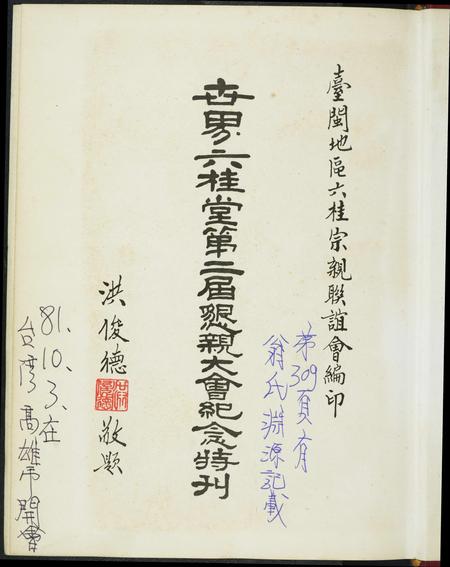 臺閩地區六桂宗親聯誼會編印
世界六桂堂第二届懇親大會紀念特刊
洪俊德
敬題
第309頁有
翁氏淵源記載
81.10.3.在
台湾高雄市開會